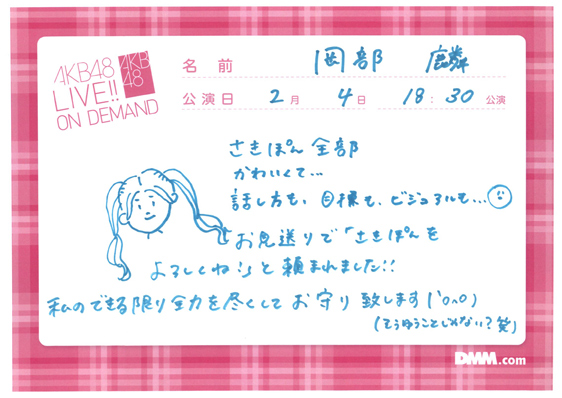 AKB48
LIVE!!
ON DEMAND
AKB
48
名前 岡部 麟
公演日 2月 4日 18:30 公演
さきぽん全部
かわいくて...
話し方も、目標も、ビジュアルも...
お見送りで「さきぽんを
よろしくね!」と頼まれました!!
私のできる限り全力を尽くしてお守り致します(`o∩o)
(そうゆうことじゃない?笑)
DMM.com